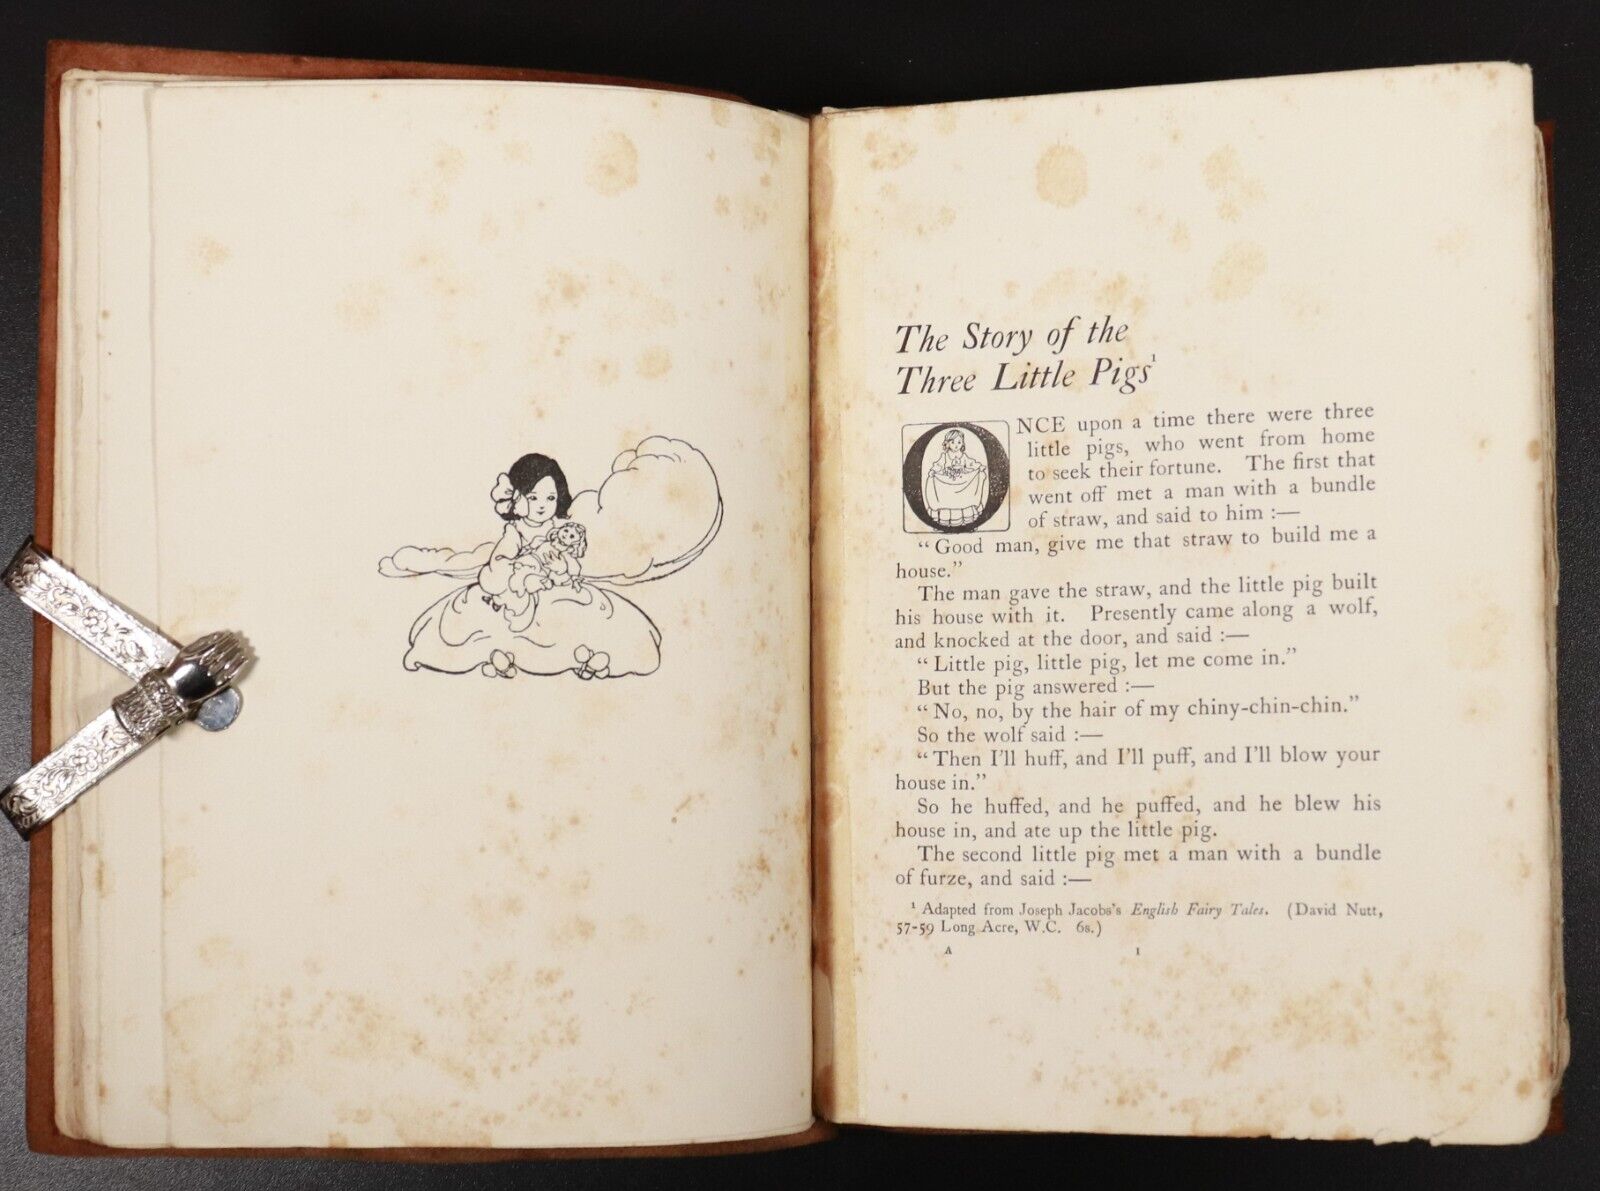 The Story of the
Three Little Pigs¹
ONCE upon a time there were three
little pigs, who went from home
to seek their fortune. The first that
went off met a man with a bundle
of straw, and said to him :—
“Good man, give me that straw to build me a
house.”
The man gave the straw, and the little pig built
his house with it. Presently came along a wolf,
and knocked at the door, and said :—
“Little pig, little pig, let me come in.”
But the pig answered :—
“No, no, by the hair of my chiny-chin-chin.”
So the wolf said :—
“Then I'll huff, and I'll puff, and I'll blow your
house in.”
So he huffed, and he puffed, and he blew his
house in, and ate up the little pig.
The second little pig met a man with a bundle
of furze, and said :—
¹ Adapted from Joseph Jacobs's English Fairy Tales. (David Nutt,
57-59 Long Acre, W.C. 6s.)
A 1